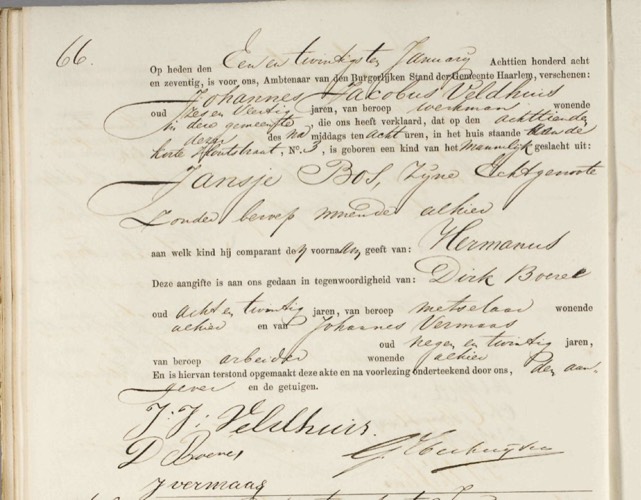 66.
Op heden den Een en twintigsten January Achttien honderd acht
en zeventig, is voor ons, Ambtenaar van den Burgerlijken Stand der Gemeente Haarlem, verschenen:
Johannes Jacobus Veldhuis
oud zes en Veertig jaren, van beroep werkman wonende
in deze gemeente, die ons heeft verklaard, dat op den achttienden
dezer des na middags ten acht uren, in het huis staande aan de
korte Houtstraat, No. 3, is geboren een kind van het mannelijk geslacht uit:
Jansje Bos, zyne Echtgenoote
zonder beroep wonende alhier
aan welk kind hij comparant de voornaam geeft van: Hermanus
Deze aangifte is aan ons gedaan in tegenwoordigheid van: Dirk Boeree
oud acht en twintig jaren, van beroep metselaar wonende
alhier en van Johannes Vermaas
oud negen en twintig jaren,
van beroep arbeider wonende alhier
En is hiervan terstond opgemaakt deze akte en na voorlezing onderteekend door ons, den aan-
gever en de getuigen.
J. J. Veldhuis.
D Boeree
J vermaas